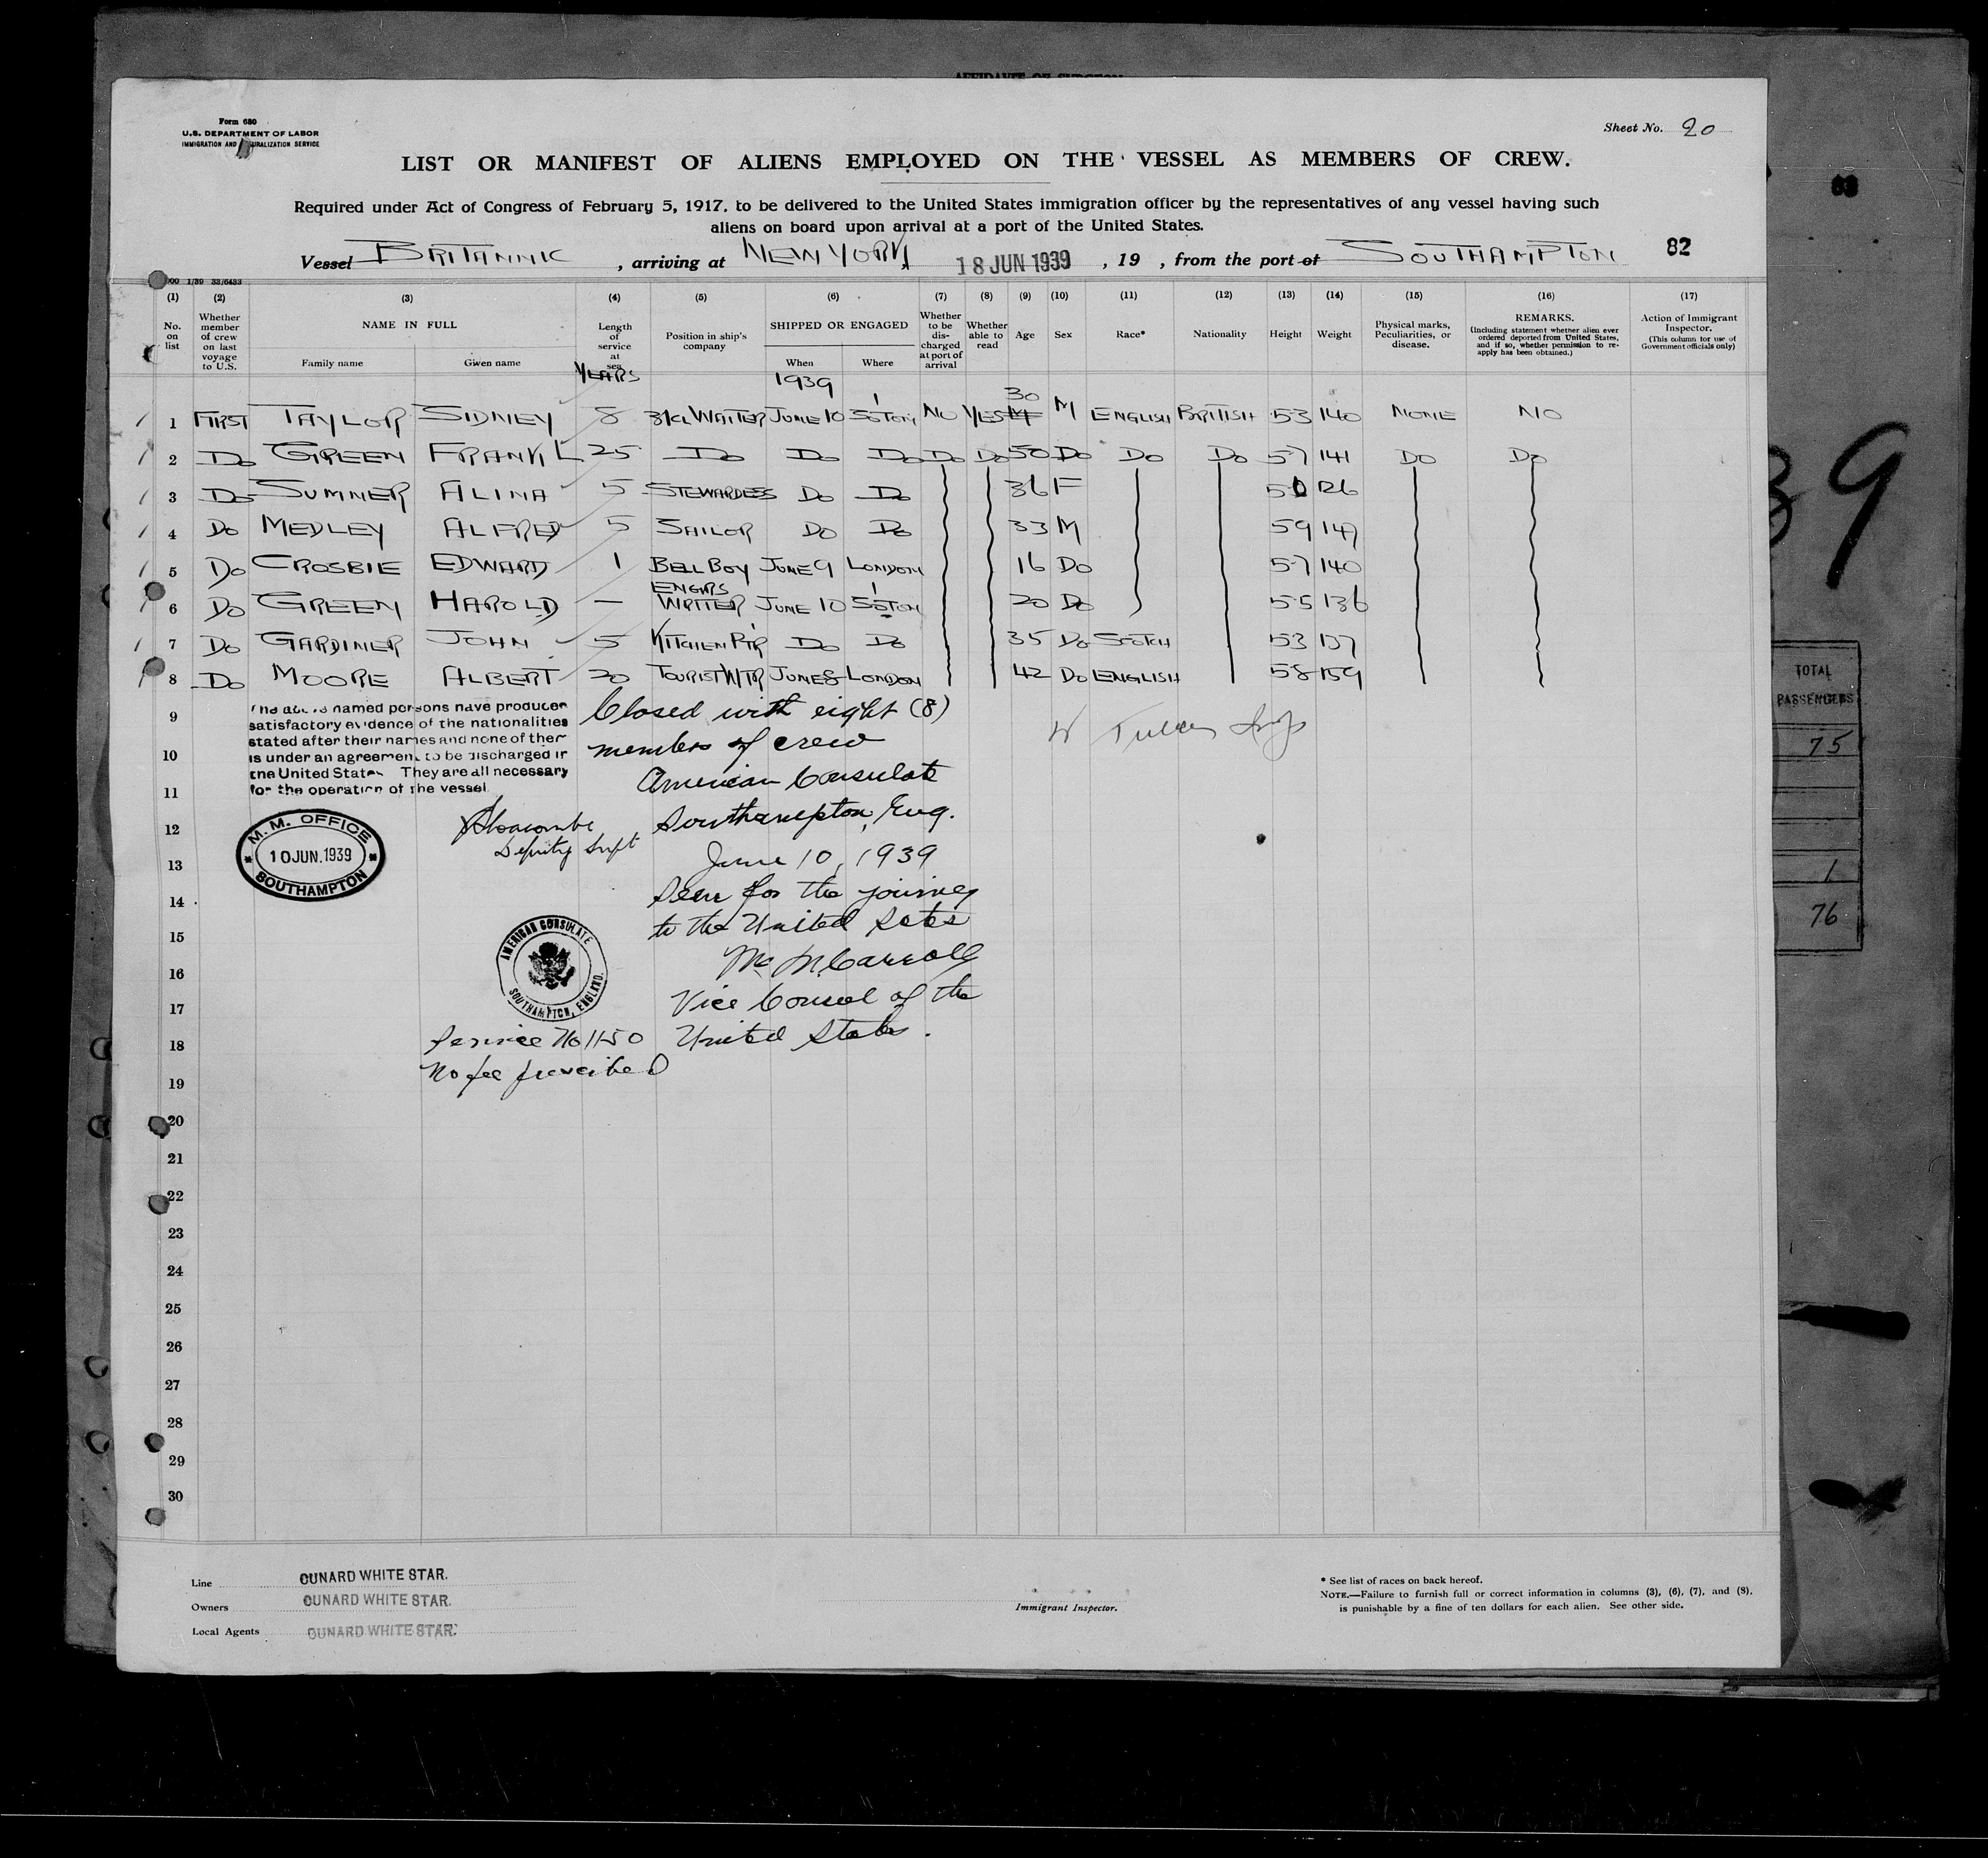 AFFIDAVIT OF SURGEON
Form 680
U.S. DEPARTMENT OF LABOR
IMMIGRATION AND NATURALIZATION SERVICE
Sheet No. 20
LIST OR MANIFEST OF ALIENS EMPLOYED ON THE VESSEL AS MEMBERS OF CREW.
Required under Act of Congress of February 5, 1917, to be delivered to the United States immigration officer by the representatives of any vessel having such
aliens on board upon arrival at a port of the United States.
Vessel BRITANNIC, arriving at NEW YORK, 18 JUN 1939, 19 , from the port of SOUTHAMPTON 82
1/39 33/6433
(1) (2) (3) (4) (5) (6) (7) (8) (9) (10) (11) (12) (13) (14) (15) (16) (17)
No. on list
Whether member of crew on last voyage to U.S.
NAME IN FULL
Family name Given name
Length of service at sea
YEARS
Position in ship's company
SHIPPED OR ENGAGED
When Where
1939
Whether to be discharged at port of arrival
Whether able to read
Age
Sex
Race*
Nationality
Height
Weight
Physical marks, Peculiarities, or disease.
REMARKS.
(Including statement whether alien ever ordered deported from United States, and if so, whether permission to re-apply has been obtained.)
Action of Immigrant Inspector.
(This column for use of Government officials only)
1 FIRST TAYLOR SIDNEY 8 3/CL WAITER JUNE 10 SOTON NO YES 30 M ENGLISH BRITISH 53 140 NONE NO
2 Do GREEN FRANK L 25 Do Do Do Do Do 50 Do Do Do 57 141 Do Do
3 Do SUMNER ALINA 5 STEWARDESS Do Do 36 F 50 126
4 Do MEDLEY ALFRED 5 SAILOR Do Do 33 M 59 147
5 Do CROSBIE EDWARD 1 BELL BOY JUNE 9 LONDON 16 Do 57 140
6 Do GREEN HAROLD — ENGRS WRITER JUNE 10 SOTON 20 Do 55 136
7 Do GARDINER JOHN 5 KITCHEN PTR Do Do 35 Do SCOTCH 53 137
8 Do MOORE ALBERT 20 TOURIST WTR JUNE 8 LONDON 42 Do ENGLISH 58 159
The above named persons have produced
satisfactory evidence of the nationalities
stated after their names and none of them
is under an agreement to be discharged in
the United States They are all necessary
for the operation of the vessel.
Deputy Supt
M.M. OFFICE
10 JUN. 1939
SOUTHAMPTON
Closed with eight (8)
members of crew
American Consulate
Southampton, Eng.
June 10, 1939
Seen for the journey
to the United States
Vice Consul of the
United States.
AMERICAN CONSULATE
SOUTHAMPTON, ENGLAND.
Service No 1150
No fee prescribed
9
10
11
12
13
14
15
16
17
18
19
20
21
22
23
24
25
26
27
28
29
30
Line CUNARD WHITE STAR.
Owners CUNARD WHITE STAR.
Local Agents CUNARD WHITE STAR.
Immigrant Inspector.
* See list of races on back hereof.
NOTE.—Failure to furnish full or correct information in columns (3), (6), (7), and (8),
is punishable by a fine of ten dollars for each alien. See other side.
39
TOTAL
PASSENGERS
75
1
76